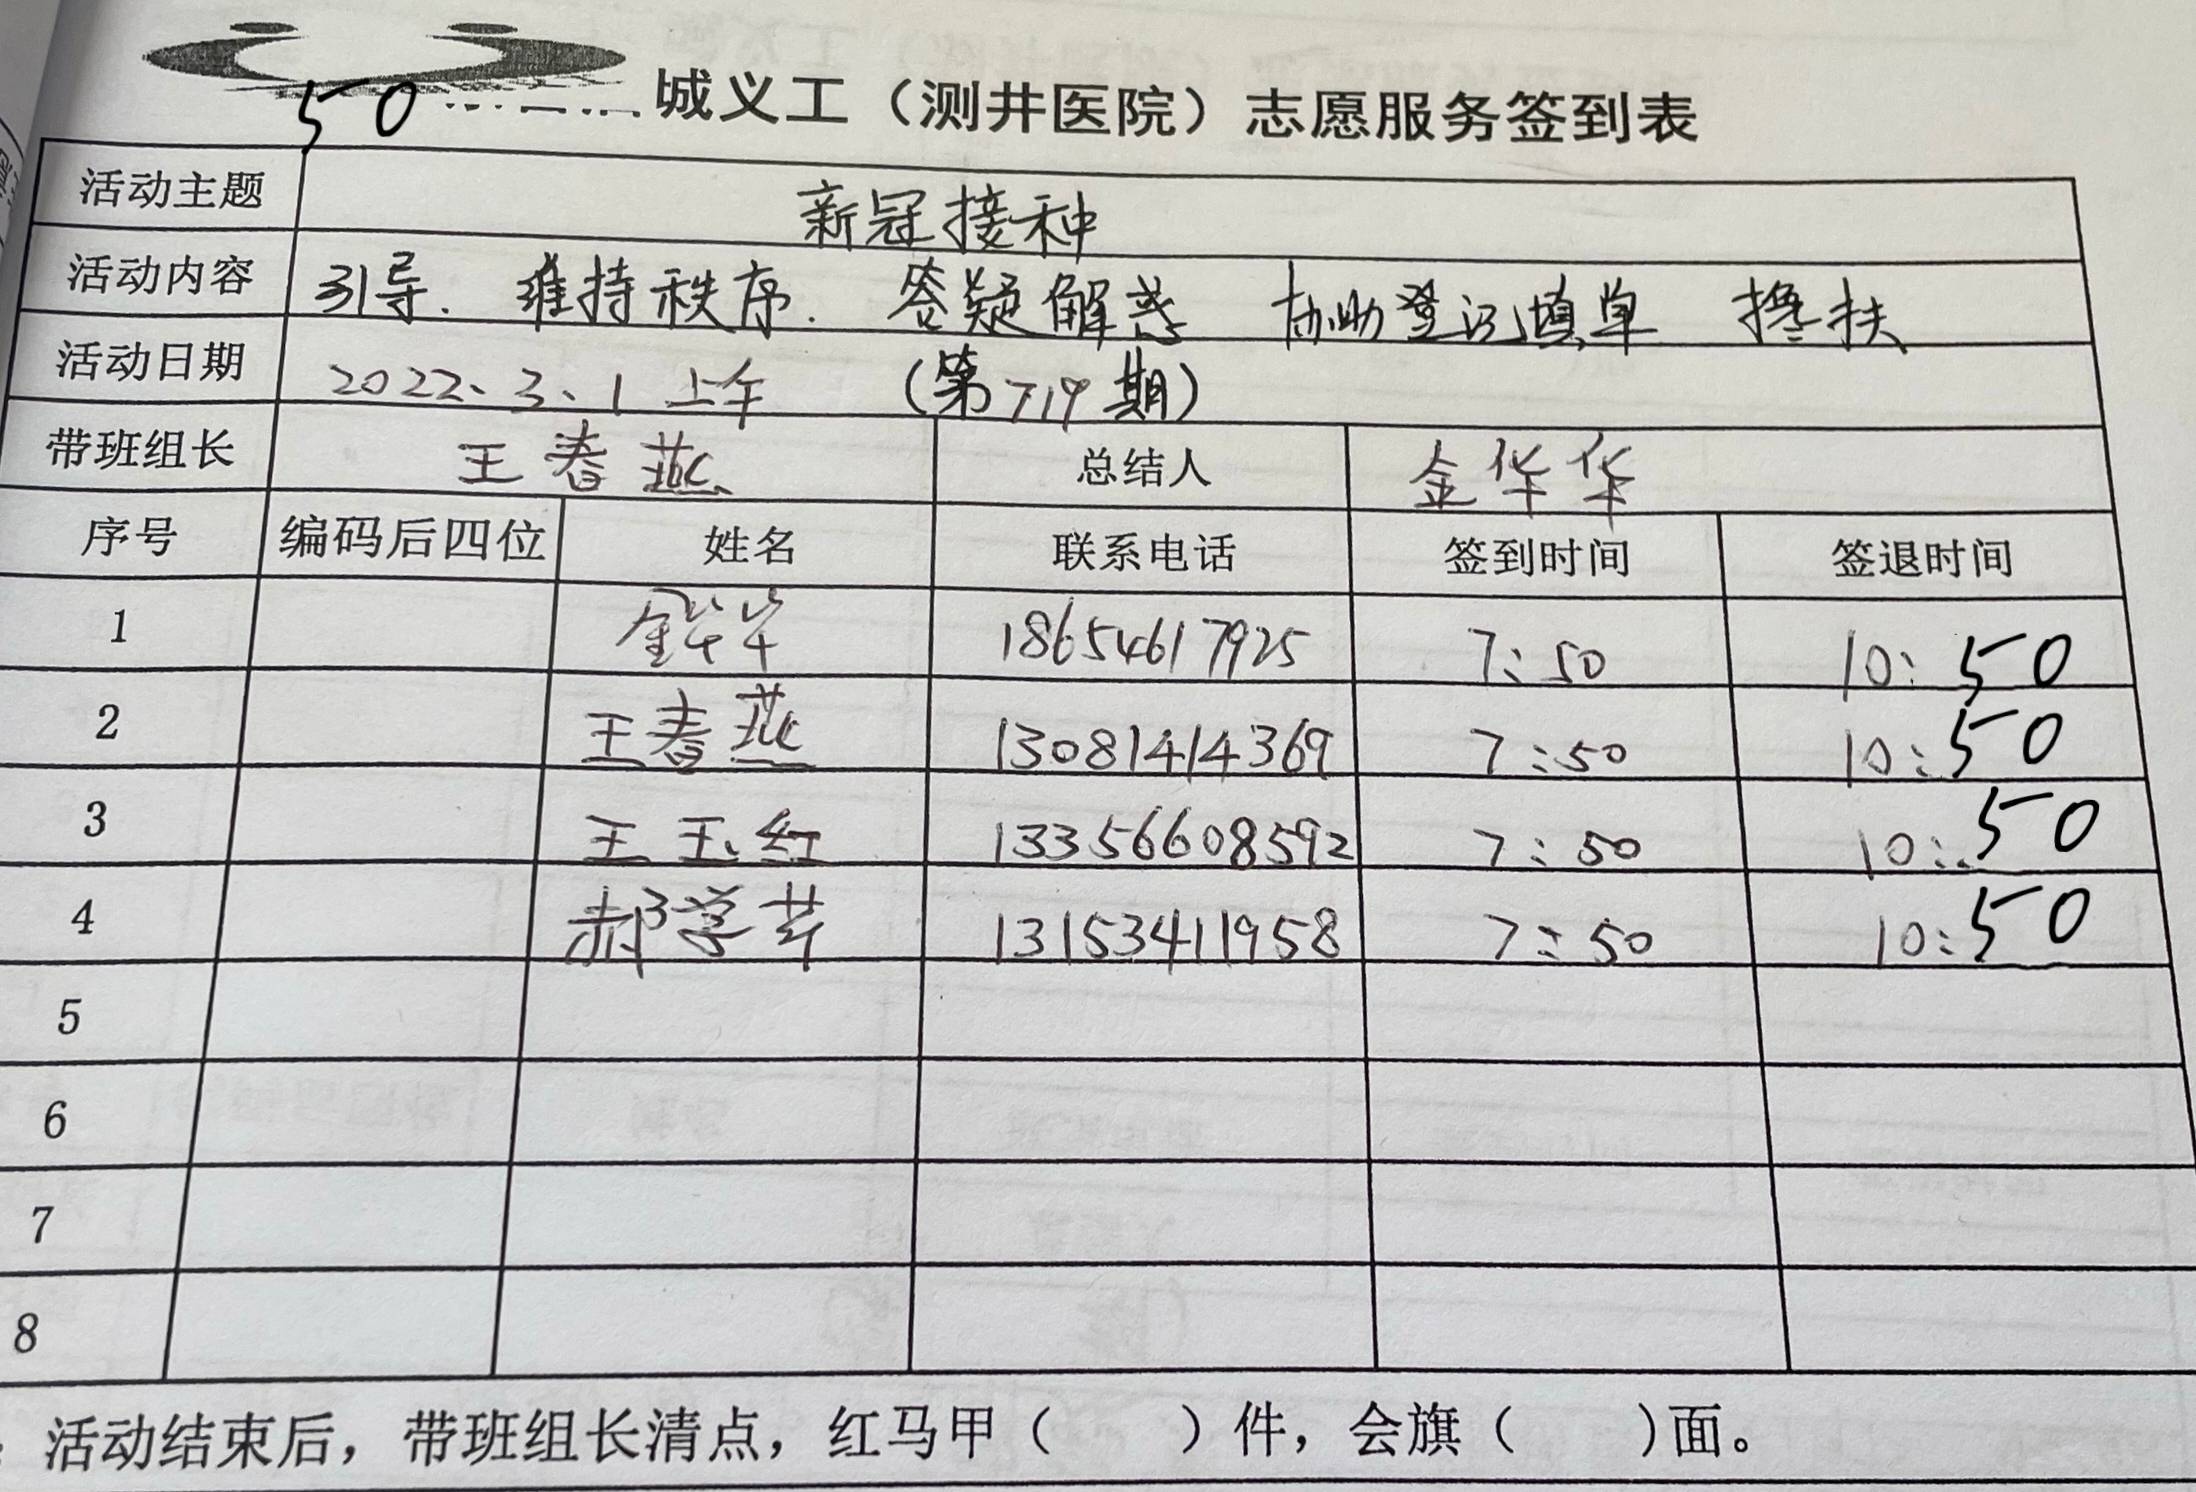 50 城义工（测井医院）志愿服务签到表
活动主题 新冠接种
活动内容 引导. 维持秩序. 答疑解惑 协助登记填单 搀扶
活动日期 2022、3、1 上午 (第719期)
带班组长 王春燕 总结人 金华华
序号 编码后四位 姓名 联系电话 签到时间 签退时间
1 金华华 18654617925 7:50 10:50
2 王春燕 13081414369 7:50 10:50
3 王玉红 13356608592 7:50 10:50
4 郝学芹 13153411958 7:50 10:50
5
6
7
8
活动结束后，带班组长清点，红马甲（ ）件，会旗（ ）面。